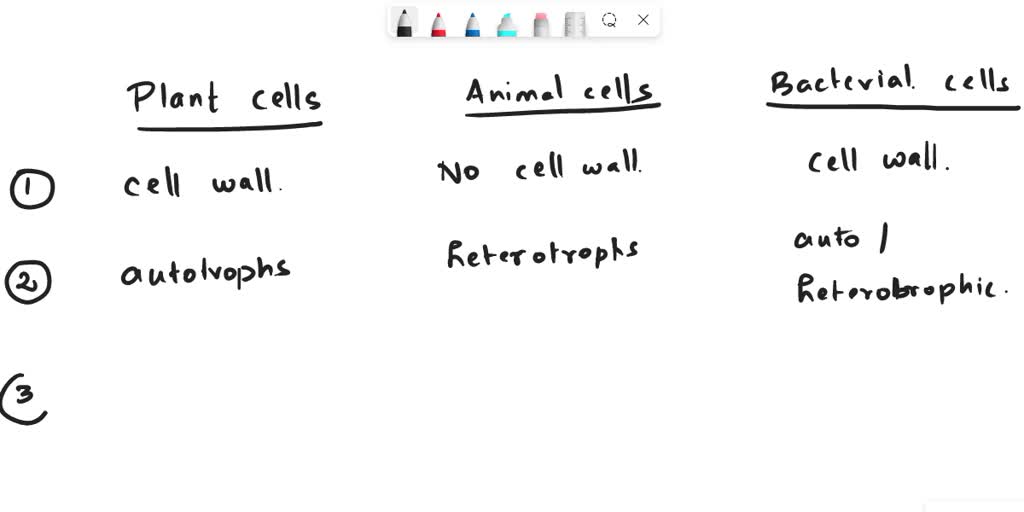 Plant cells Animal cells Bacterial cells
1 cell wall. No cell wall. cell wall.
2 autotrophs heterotrophs auto /
heterotrophic.
3